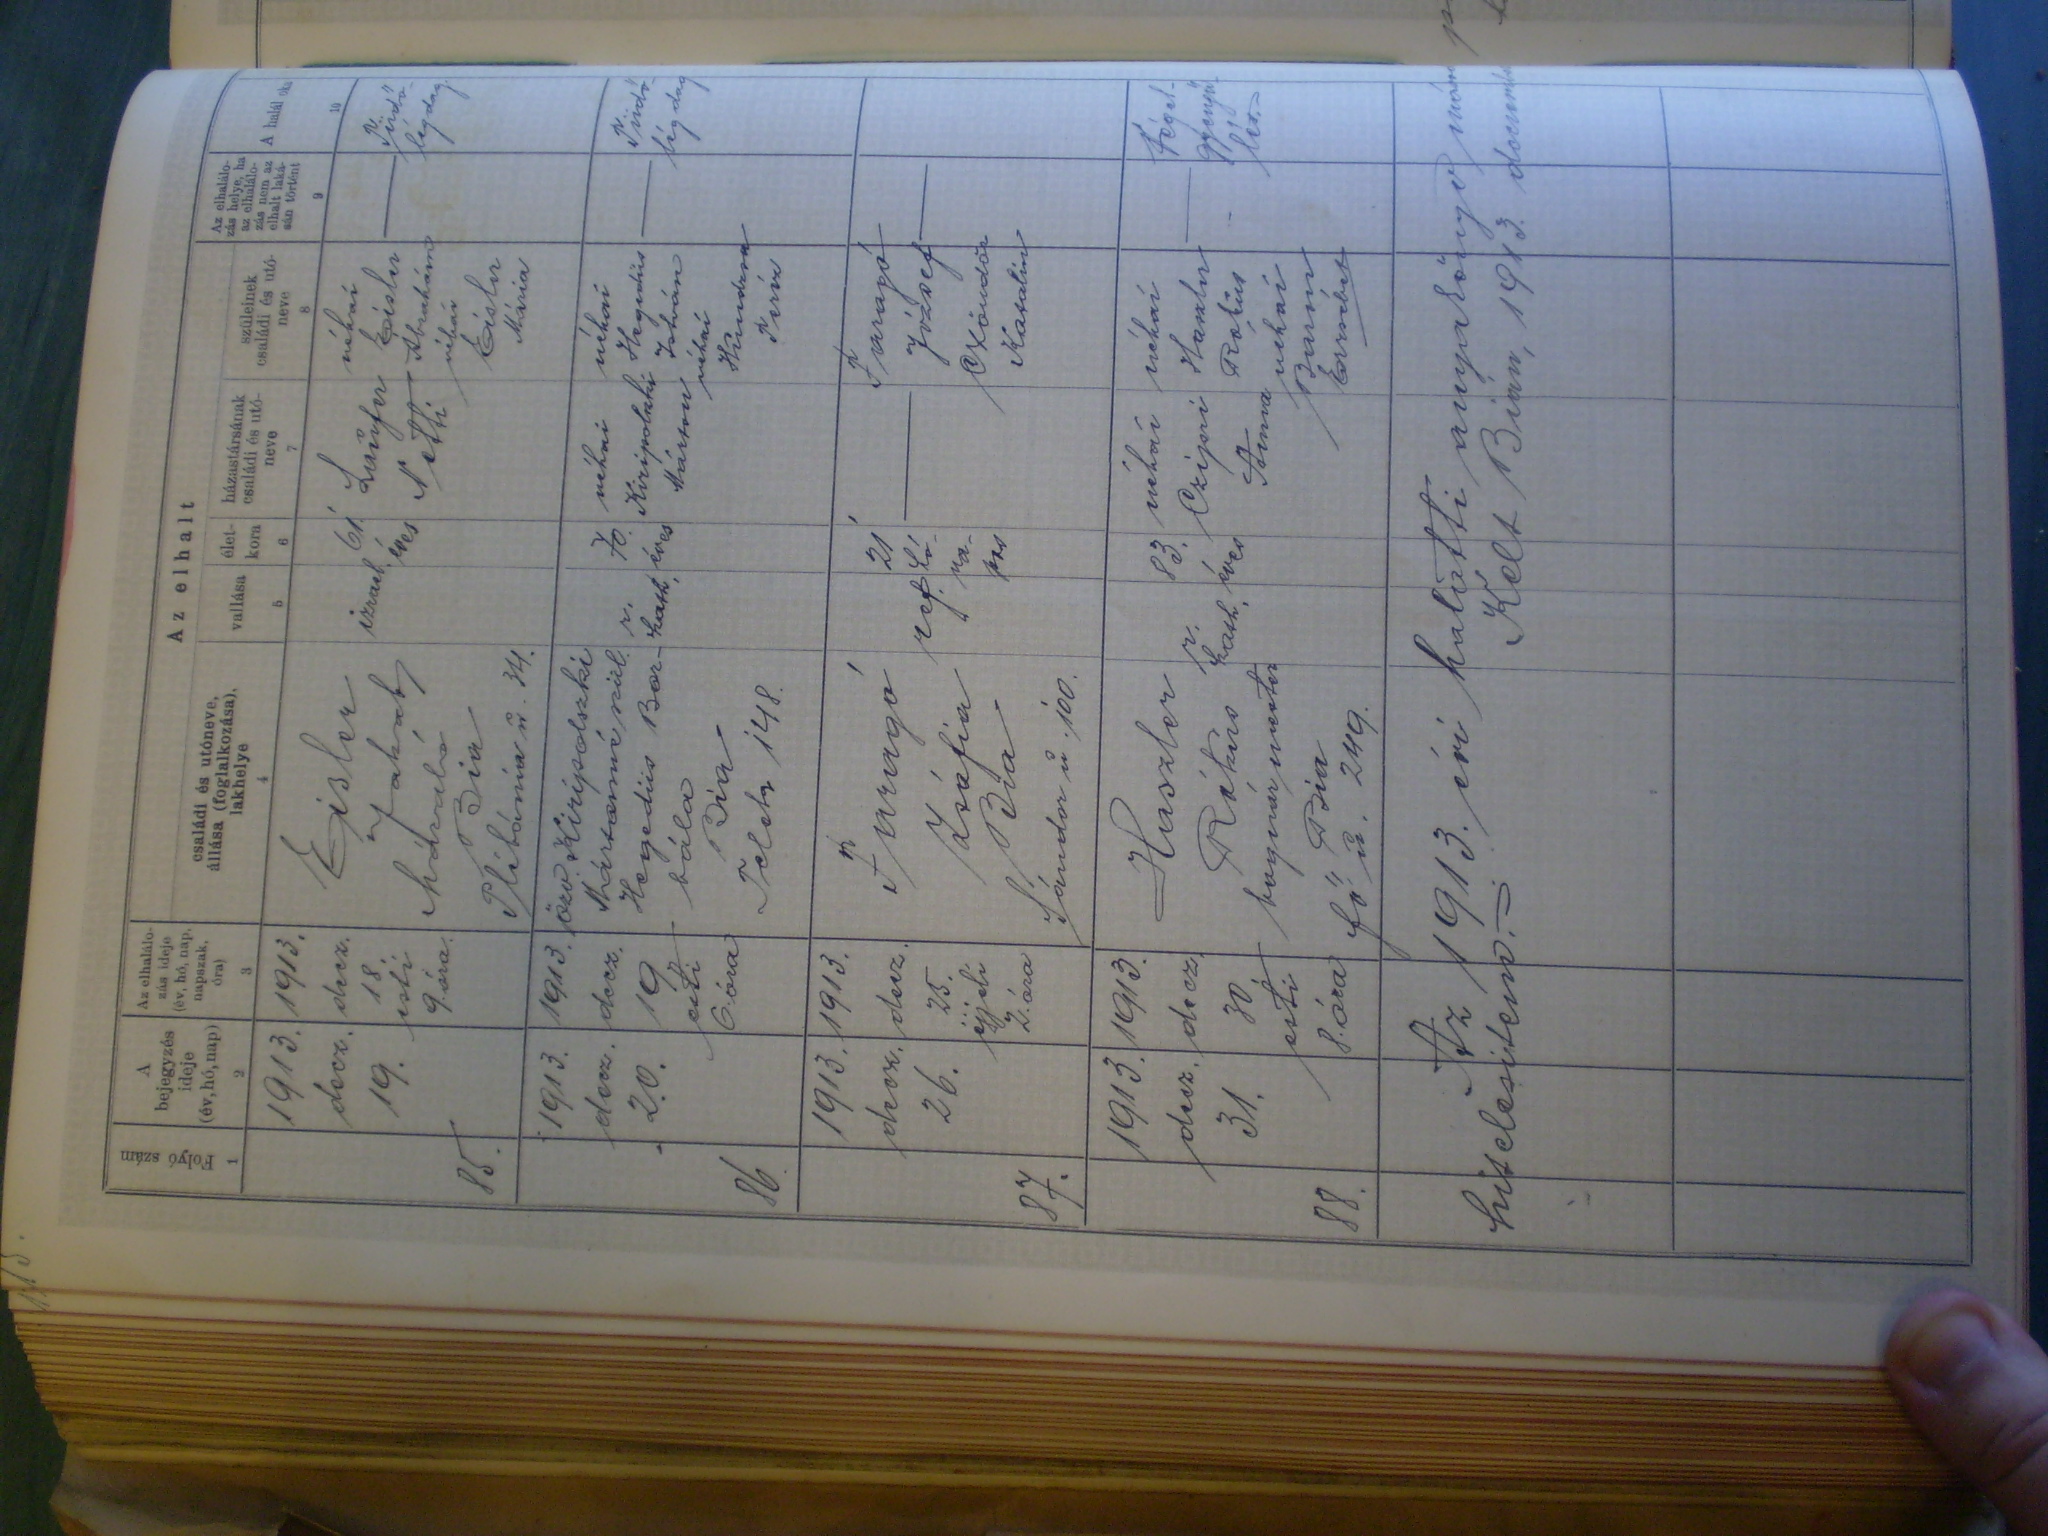 Az elhalt
Folyó szám
A
bejegyzés
ideje
(év, hó, nap)
Az elhalálo-
zás ideje
(év, hó, nap,
napszak,
óra)
családi és utóneve,
állása (foglalkozása),
lakhelye
vallása
élet-
kora
házastársának
családi és utó-
neve
szüleinek
családi és utó-
neve
Az elhalálo-
zás helye, ha
az elhalálo-
zás nem az
elhalt laká-
sán történt
A halál oka
1
2
3
4
5
6
7
8
9
10
85.
1913.
decz.
19.
1913.
decz.
18.
esti
9. óra
Eisler
Jakab
Bia
Plébánia u. 34.
izrael.
61.
éves
Netti
néhai
Eisler
Ábrahám
néhai
Eisler
Mária
Tüdő-
légdag
86.
1913.
decz.
20.
1913.
decz.
19
esti
6. óra
özv. Kiripolszki
Mártonné szül.
Hegedüs Bor-
bála
Bia
Telek 148.
r.
kath.
70.
éves
néhai
Kiripolszki
Márton
néhai
Hegedüs
István
néhai
Teréz
Tüdő-
légdag
87.
1913.
decz.
26.
1913.
decz.
25.
éjjeli
2. óra
Faragó
Zsófia
Bia
Sándor u. 100.
ref.
21
hó-
na-
pos
Faragó
József
Katalin
88.
1913.
decz.
31.
1913.
decz.
30
esti
8. óra
Haszler
Rókus
bognármester
Bia
Fő u. 249.
r.
kath.
83.
éves
néhai
Czipri
Anna
néhai
Haszler
Rókus
néhai
Erzsébet
Végel-
gyengü-
lés.
Az 1913. évi halotti anyakönyv
hitelesitem.
Kelt Bián, 1913.